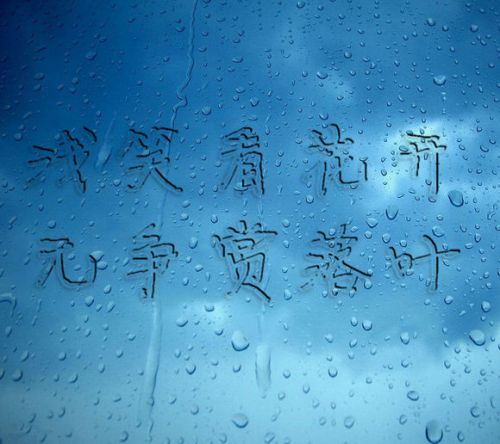 浅笑看花开
无争赏落叶